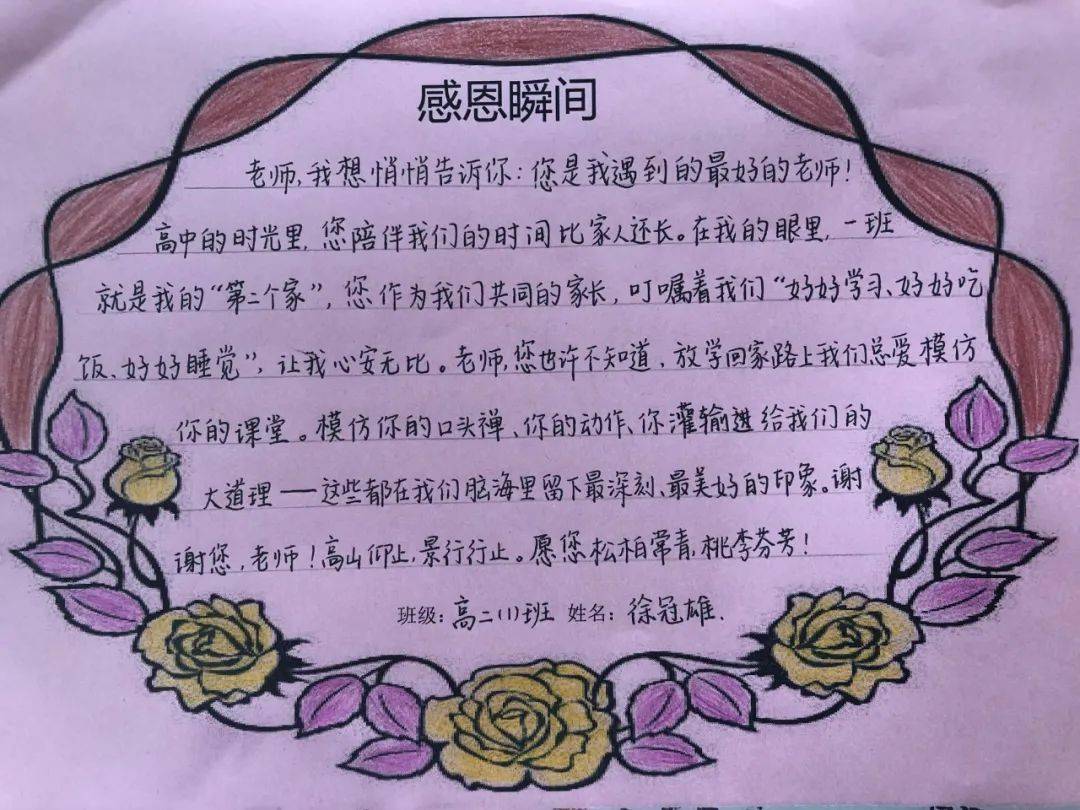 感恩瞬间
老师,我想悄悄告诉你:您是我遇到的最好的老师!
高中的时光里,您陪伴我们的时间比家人还长。在我的眼里,一班
就是我的“第二个家”,您作为我们共同的家长,叮嘱着我们“好好学习、好好吃
饭、好好睡觉”,让我心安无比。老师,您也许不知道,放学回家路上我们总爱模仿
你的课堂。模仿你的口头禅、你的动作、你灌输进给我们的
大道理——这些都在我们脑海里留下最深刻、最美好的印象。谢
谢您,老师!高山仰止,景行行止。愿您松柏常青,桃李芬芳!
班级:高二(1)班 姓名:徐冠雄.